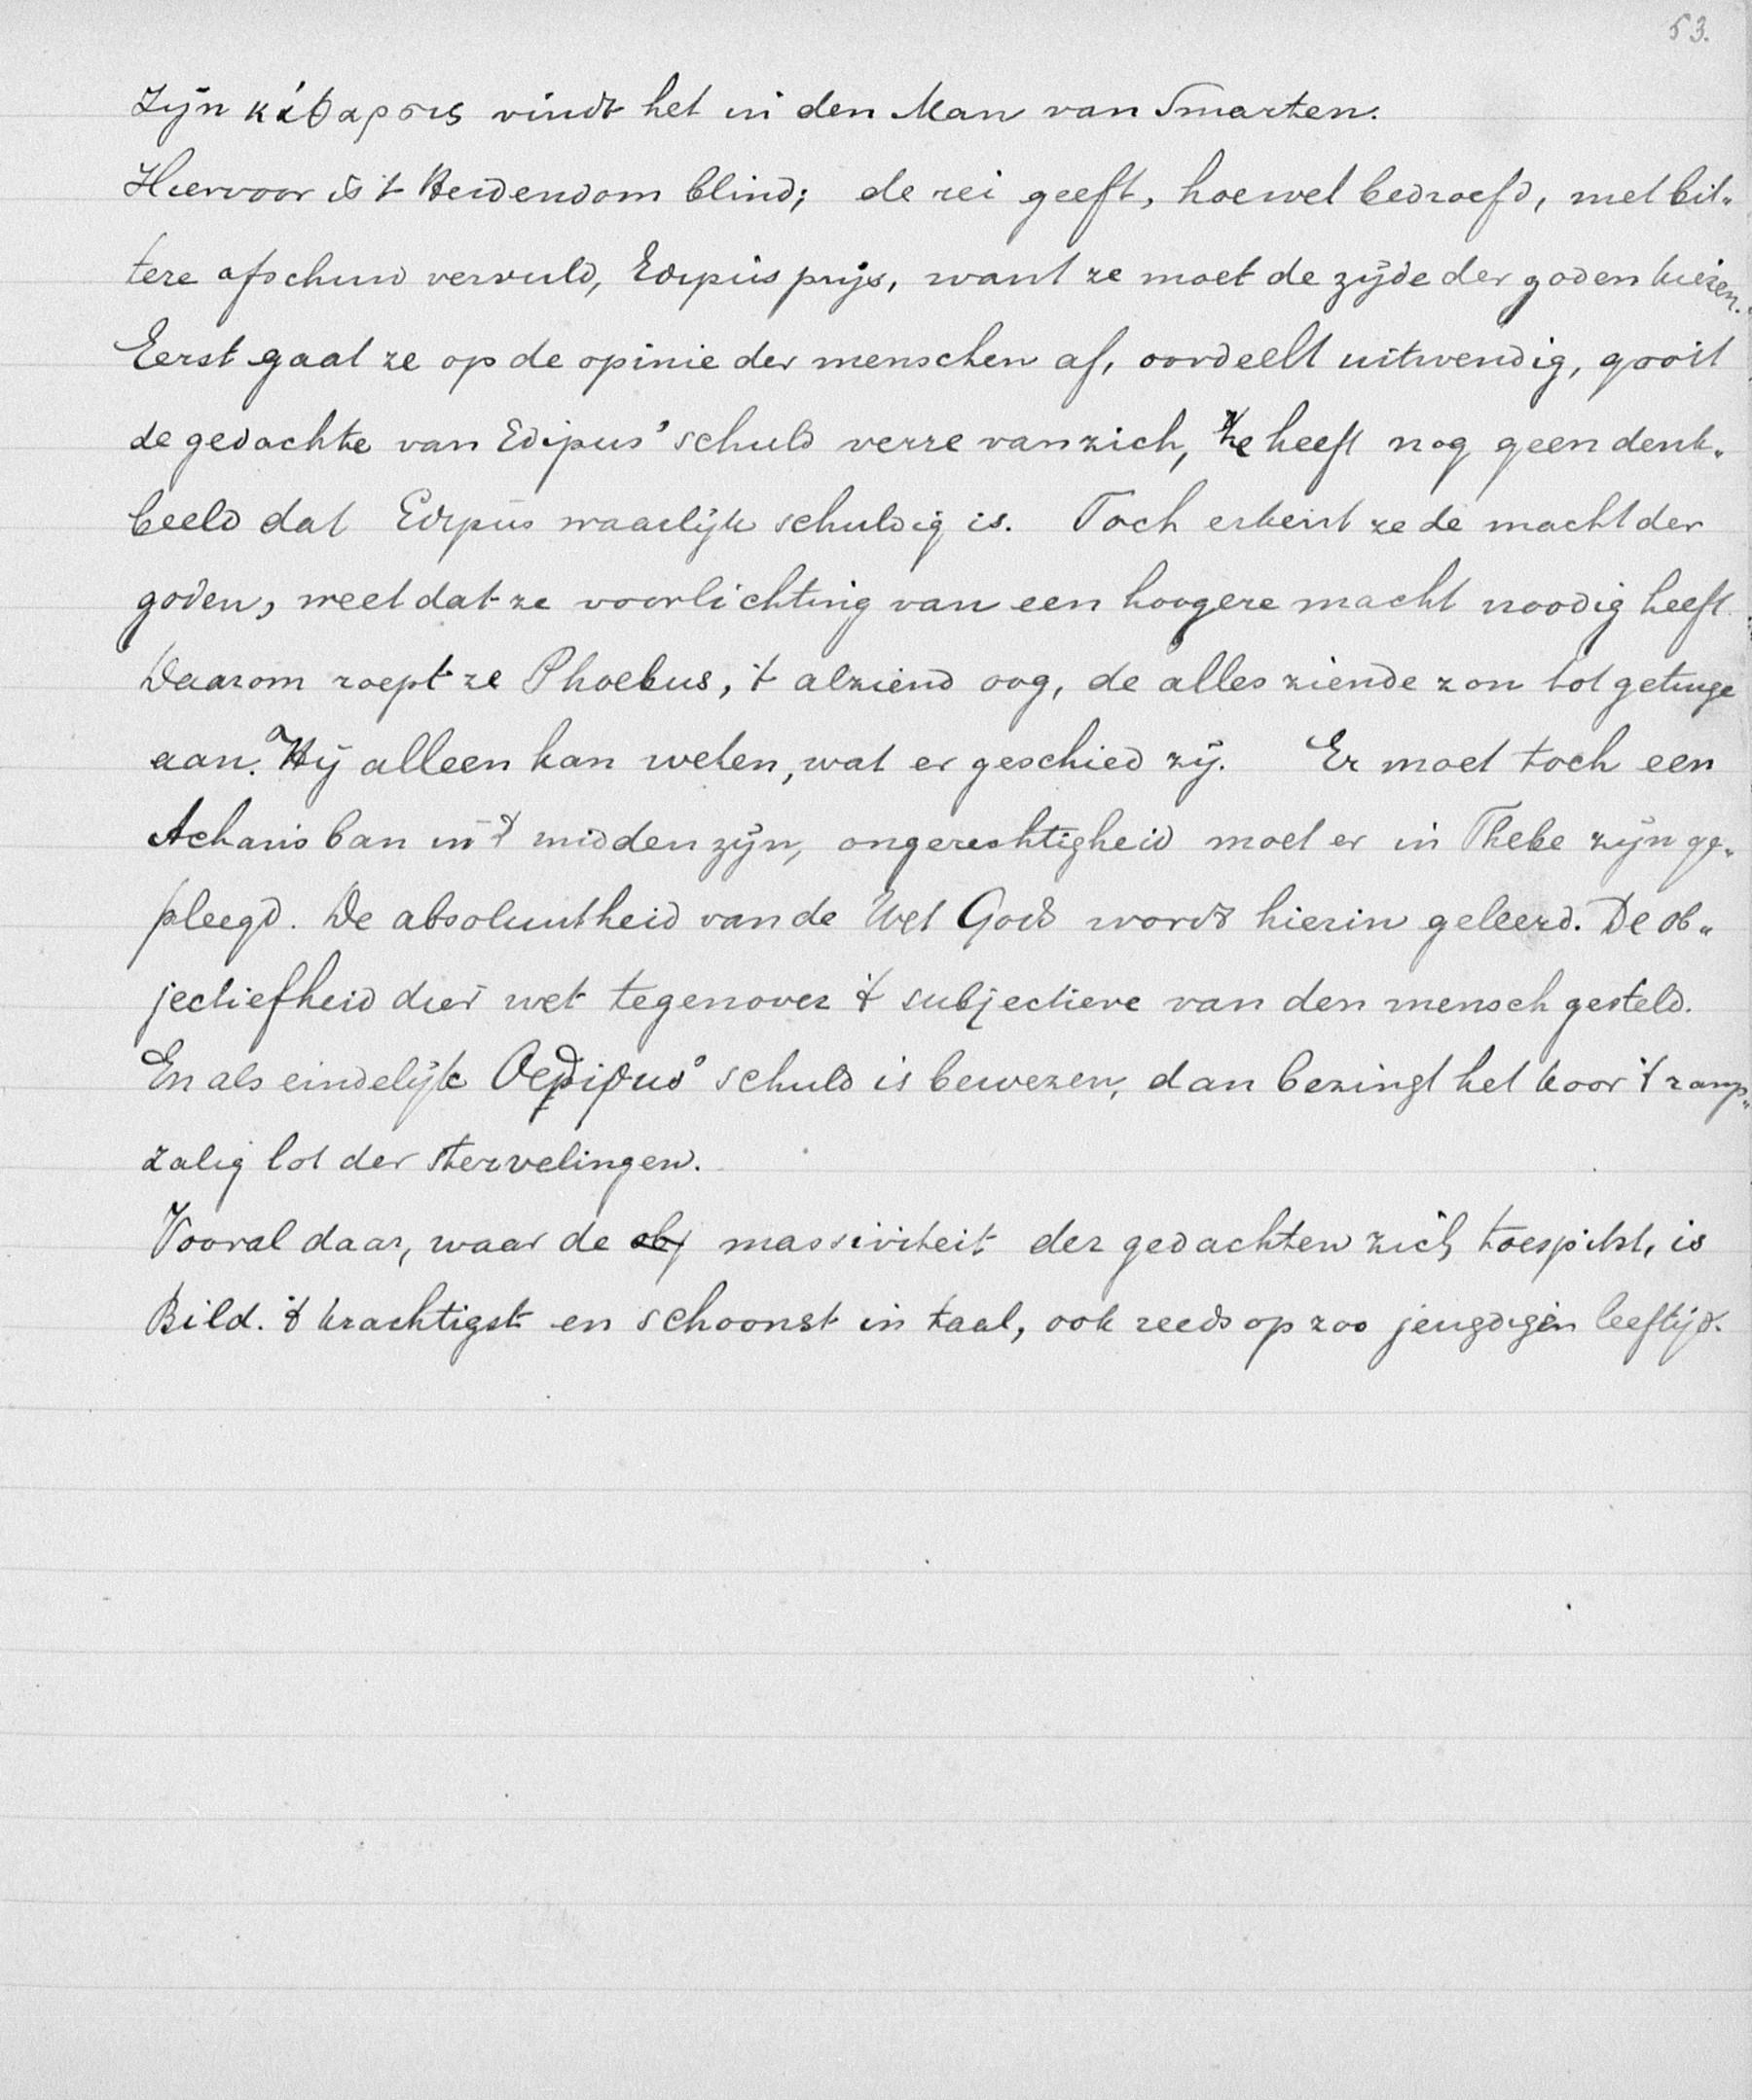 53.
Zijn κάθαρσις vindt het in den Man van Smarten.
Hiervoor is 't Heidendom blind; de rei geeft, hoewel bedroefd, met bit„
tere afschuw vervuld, Edipus prijs, want ze moet de zijde der goden kiezen.
Eerst gaat ze op de opinie der menschen af, oordeelt uitwendig, gooit
de gedachte van Edipus' schuld verre van zich, ze heeft nog geen denk„
beeld dat Edipus waarlijk schuldig is. Toch erkent ze de macht der
goden, weet dat ze voorlichting van een hoogere macht noodig heeft.
Daarom roept ze Phoebus, 't alziend oog, de alles ziende zon tot getuige
aan. Hij alleen kan weten, wat er geschied zij. Er moet toch een
Achansban in 't midden zijn, ongerechtigheid moet er in Thebe zijn ge„
pleegd. De absoluutheid van de Wet Gods wordt hierin geleerd. De ob„
jectiefheid dier wet tegenover 't subjectieve van den mensch gesteld.
En als eindelijk Oedipus' schuld is bewezen, dan bezingt het koor 't ramp„
zalig lot der stervelingen.
Vooral daar, waar de obj massiviteit der gedachten zich toespitst, is
Bild. 't krachtigst en schoonst in taal, ook reeds op zoo jeugdigen leeftijd.